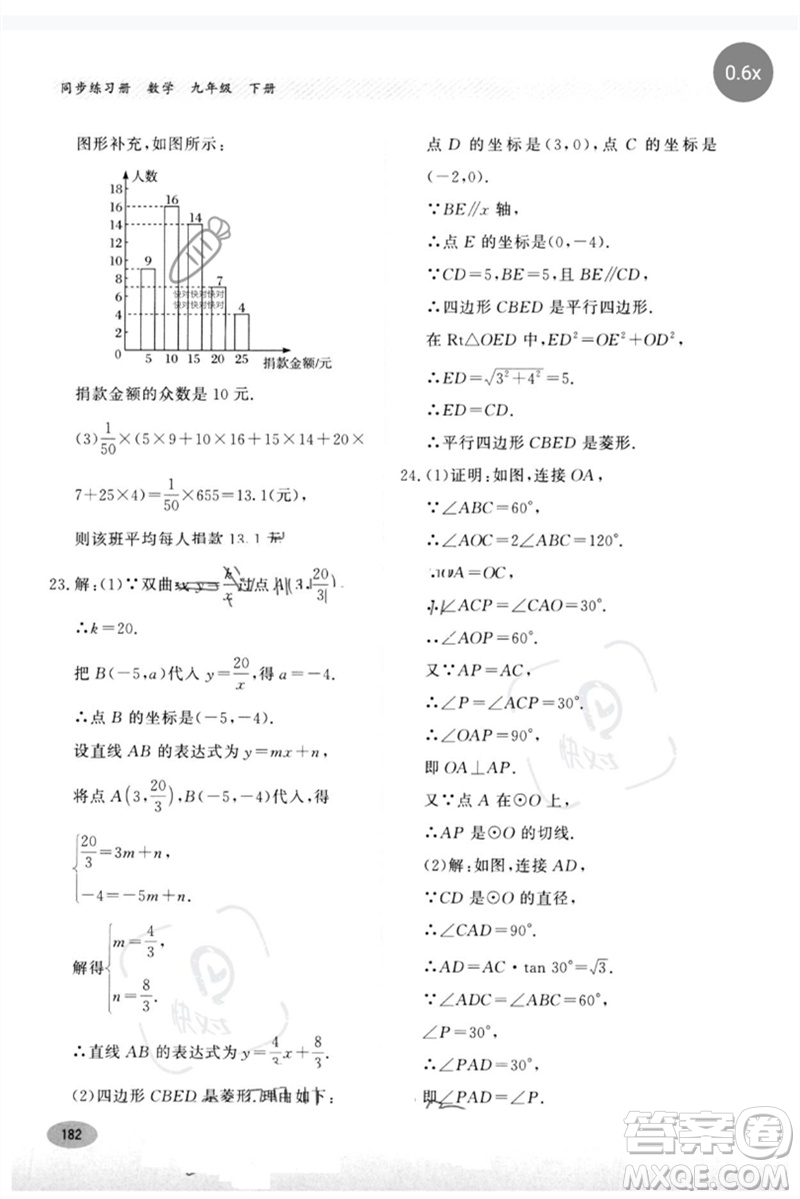 0.6x
同步练习册 数学 九年级 下册
图形补充,如图所示:
人数
18
16
14
12
10
8
6
4
2
0
9
16
14
7
4
快对快对快对快对
5 10 15 20 25
捐款金额/元
捐款金额的众数是 10 元.
(3) 1/50 ×(5×9+10×16+15×14+20×
7+25×4)= 1/50 ×655=13.1(元),
则该班平均每人捐款 13.1 元.
23.解:(1)∵双曲 过点 A(3, 20/3)
∴k=20.
把 B(-5,a)代入 y= 20/x ,得 a=-4.
∴点 B 的坐标是(-5,-4).
设直线 AB 的表达式为 y=mx+n,
将点 A(3, 20/3),B(-5,-4)代入,得
{ 20/3 =3m+n,
-4=-5m+n.
解得 { m= 4/3 ,
n= 8/3 .
∴直线 AB 的表达式为 y= 4/3 x+ 8/3 .
(2)四边形 CBED 是菱形.理由如下:
182
点 D 的坐标是(3,0),点 C 的坐标是
(-2,0).
∵BE∥x 轴,
∴点 E 的坐标是(0,-4).
∵CD=5,BE=5,且 BE∥CD.
∴四边形 CBED 是平行四边形.
在 Rt△OED 中,ED²=OE²+OD²,
∴ED=√(3²+4²)=5.
∴ED=CD.
∴平行四边形 CBED 是菱形.
24.(1)证明:如图,连接 OA,
∵∠ABC=60°,
∴∠AOC=2∠ABC=120°.
OA=OC,
∠ACP=∠CAO=30°.
∴∠AOP=60°.
又∵AP=AC,
∴∠P=∠ACP=30°.
∴∠OAP=90°.
即 OA⊥AP.
又∵点 A 在⊙O 上,
∴AP 是⊙O 的切线.
(2)解:如图,连接 AD,
∵CD 是⊙O 的直径,
∴∠CAD=90°.
∴AD=AC·tan 30°=√3.
∵∠ADC=∠ABC=60°,
∠P=30°,
∴∠PAD=30°.
即∠PAD=∠P.
快对
快对
答案卷
MXQE.COM